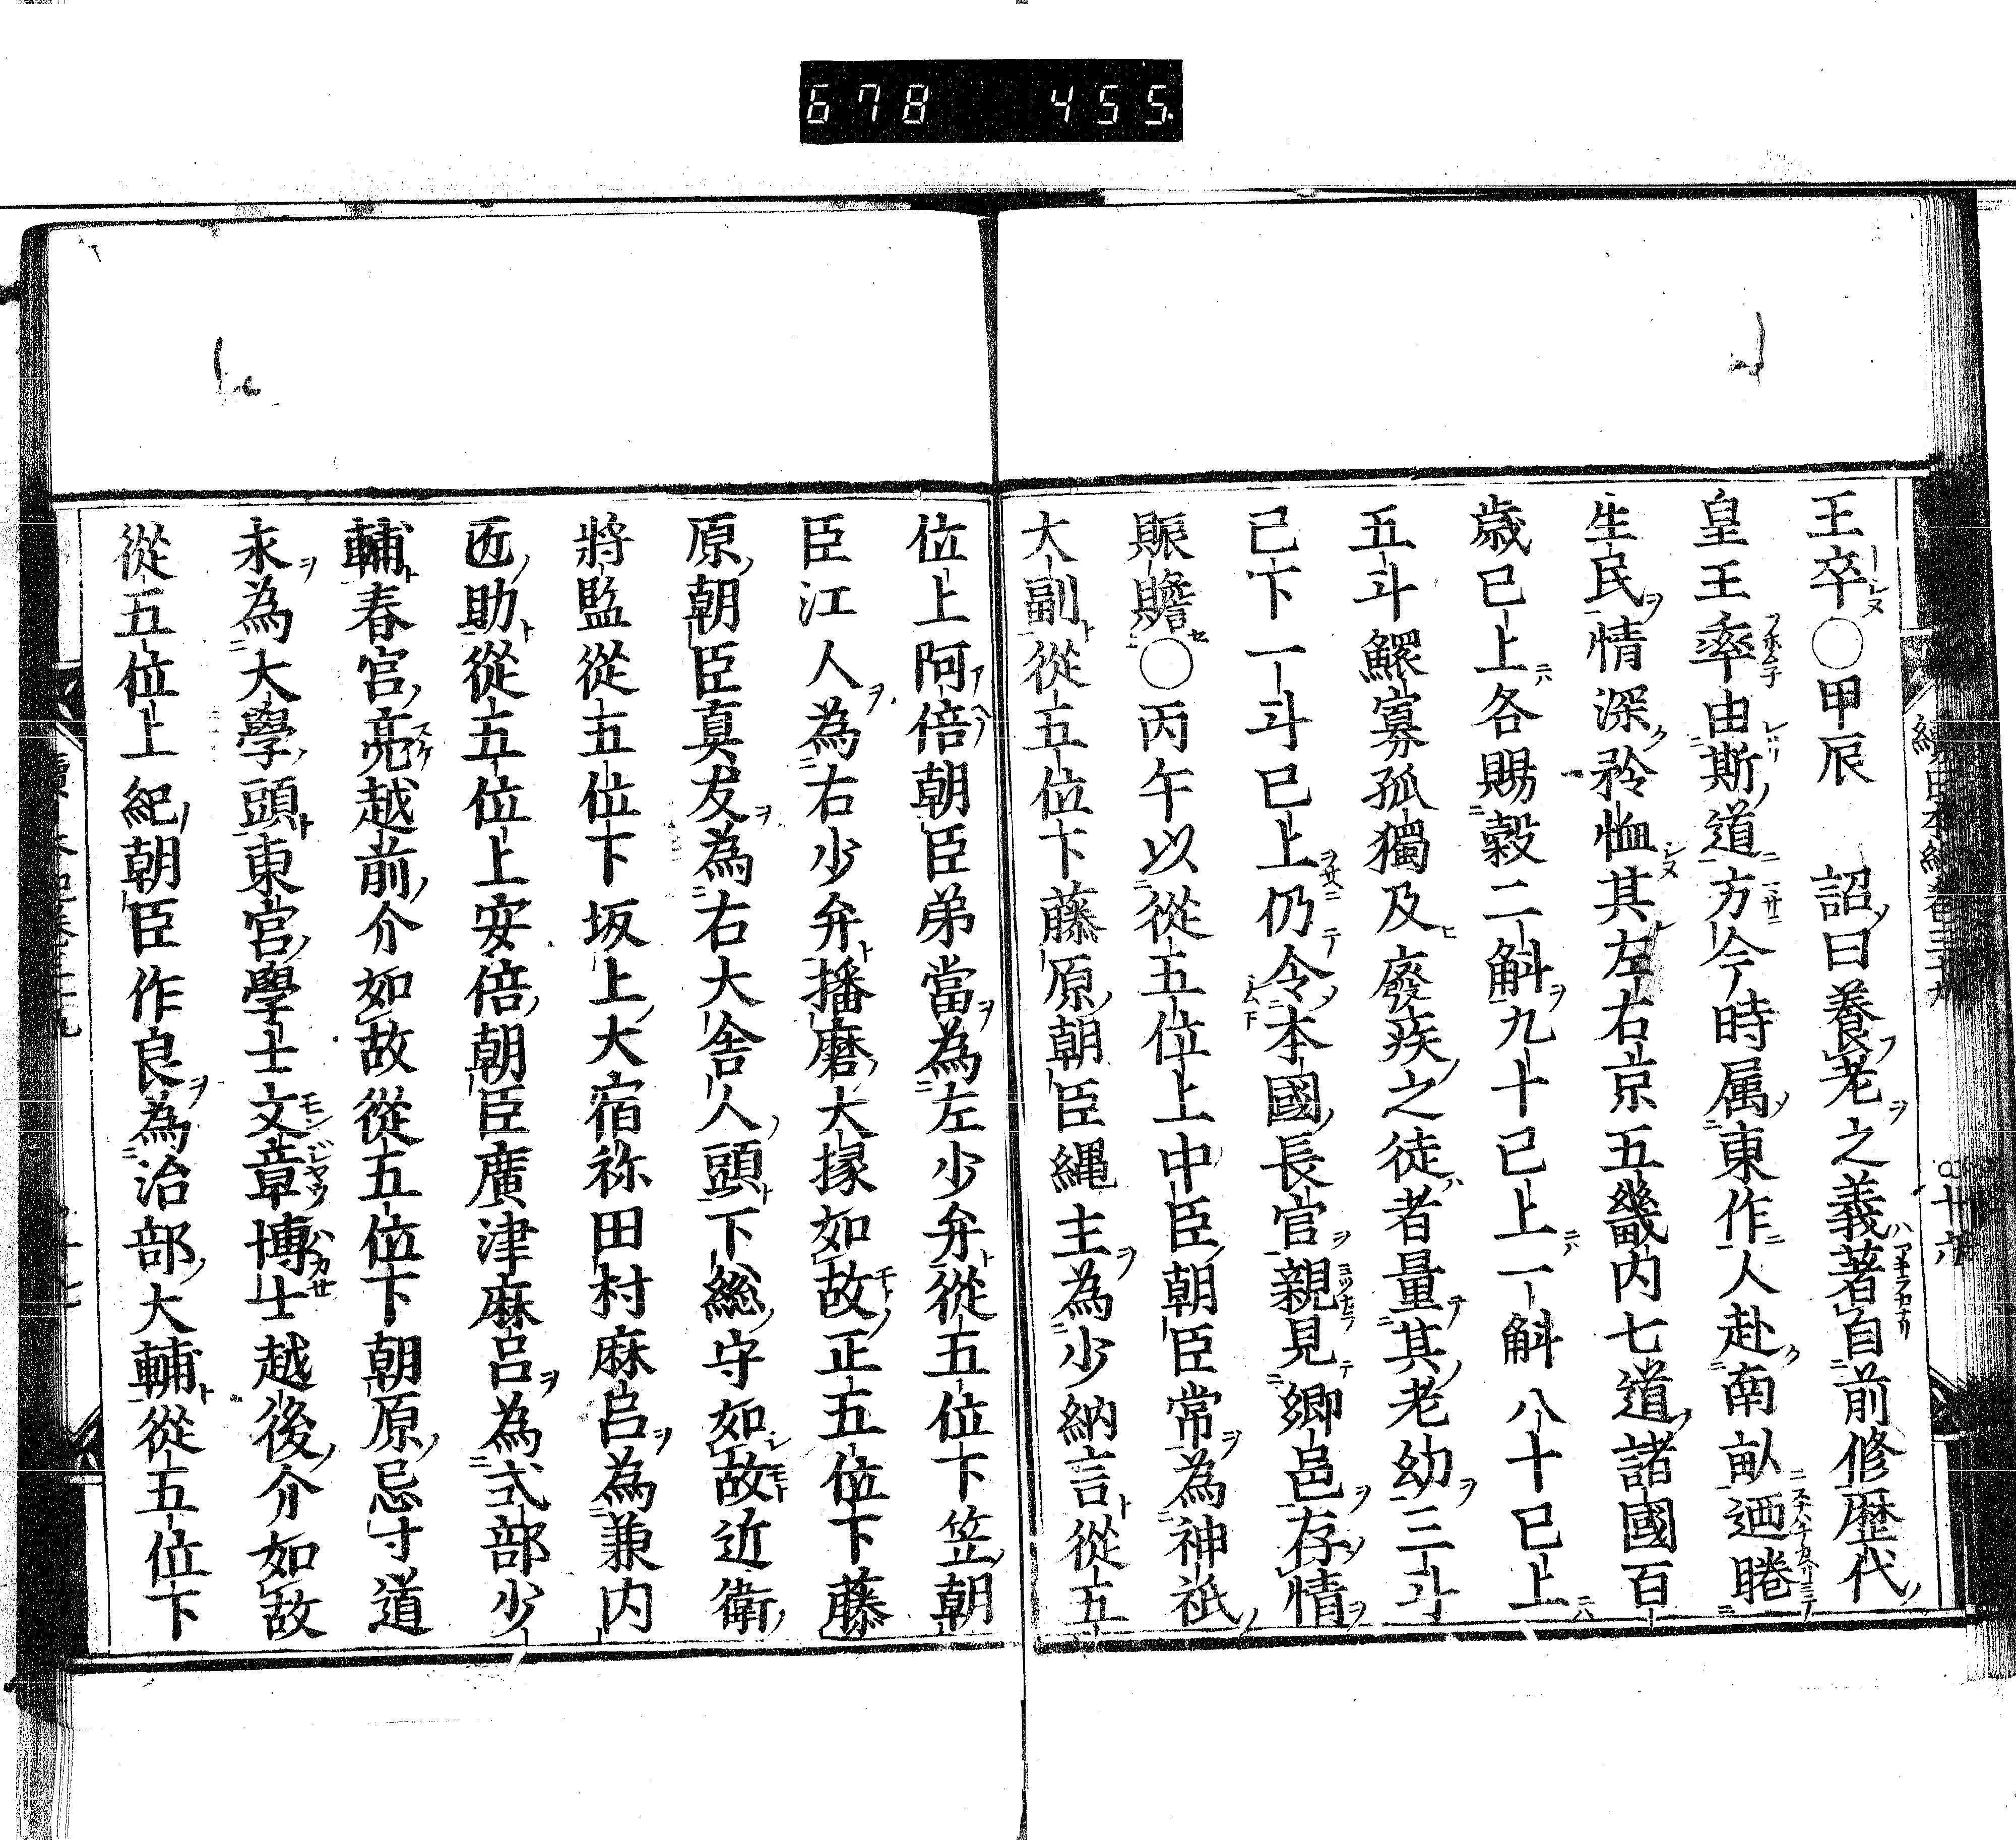 678 455
王卒○甲辰 詔曰養老之義著自前修歷代
皇王率由斯道方今時属東作人赴南畝迺睠
生民情深矜恤其左右京五畿内七道諸國百
歳已上各賜穀二斛九十已上一斛八十已上
五斗鰥寡孤獨及廢疾之徒者量其老幼三斗
已下一斗已上仍令本國長官親見鄉邑存情
賑贍○丙午以從五位上中臣朝臣常為神祇
大副從五位下藤原朝臣縄主為少納言從五
位上阿倍朝臣弟當為左少弁從五位下笠朝
臣江人為右少弁播磨大掾如故正五位下藤
原朝臣真友為右大舎人頭下総守如故近衛
將監從五位下坂上大宿祢田村麻呂為兼内
匠助從五位上安倍朝臣廣津麻呂為式部少
輔春宮亮越前介如故從五位下朝原忌寸道
永為大學頭東宮學士文章博士越後介如故
從五位上紀朝臣作良為治部大輔從五位下